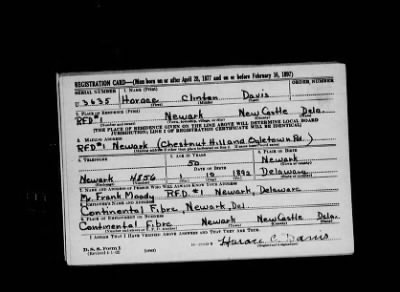 REGISTRATION CARD—(Men born on or after April 28, 1877 and on or before February 16, 1897)
SERIAL NUMBER 1. NAME (Print) ORDER NUMBER
U 3635 Horace Clinton Davis
(First) (Middle) (Last)
2. PLACE OF RESIDENCE (Print)
RFD #1 Newark New Castle Dela.
[THE PLACE OF RESIDENCE GIVEN ON THE LINE ABOVE WILL DETERMINE LOCAL BOARD
JURISDICTION; LINE 2 OF REGISTRATION CERTIFICATE WILL BE IDENTICAL]
3. MAILING ADDRESS
RFD #1 Newark (Chestnut Hill and Ogletown Rd.)
4. TELEPHONE 5. AGE IN YEARS 6. PLACE OF BIRTH
50 Newark
DATE OF BIRTH (Town or county)
Newark 4556 1 1892 Delaware
7. NAME AND ADDRESS OF PERSON WHO WILL ALWAYS KNOW YOUR ADDRESS
Mr. Frank Moody R.F.D. #1 Newark, Delaware
8. EMPLOYER'S NAME AND ADDRESS
Continental Fibre, Newark, Del.
9. PLACE OF EMPLOYMENT OR BUSINESS
Continental Fibre Newark New Castle Dela.
I AFFIRM THAT I HAVE VERIFIED ABOVE ANSWERS AND THAT THEY ARE TRUE.
D. S. S. Form 1
(Revised 4-1-42) (over) Horace C. Davis